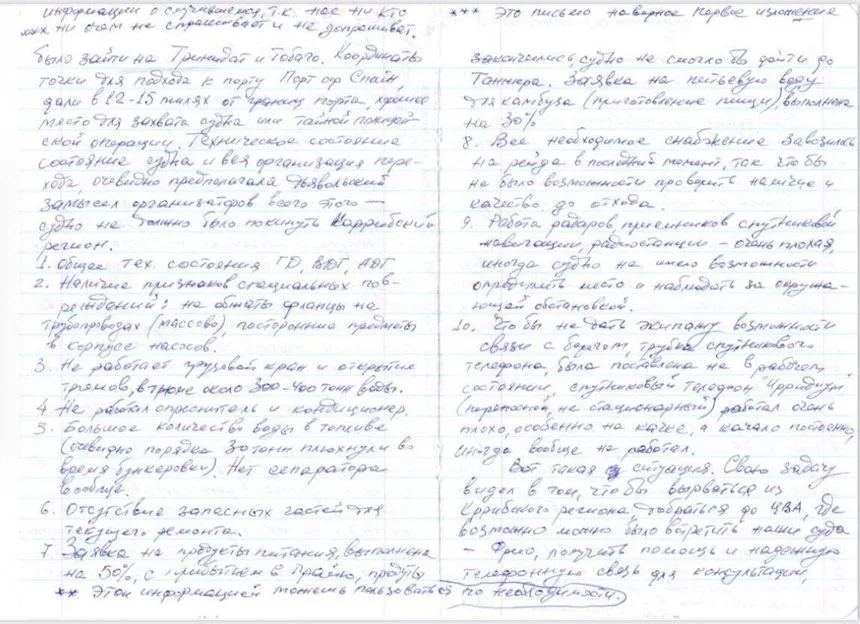 информации о случившемся, т.к. нас ни кто
ни о чём не спрашивает и не допрашивает.
было зайти на Тринидат и Тобаго. Координаты
точки для подхода к порту Порт оф Спайн,
дали в 12-15 милях от границ порта, хорошее
место для захвата судна или тайной полицей-
ской операции. Техническое состояние
состояние судна и вся организация пере-
хода, очевидно предполагала дьявольский
замысел организаторов всего этого —
судно не должно было покинуть Каррибский
регион.
1. Общее тех. состояния ГД, ВДГ, АДГ
2. Наличие признаков специальных пов-
реждений: не обжаты фланцы на
трубопроводах (массово) посторонние предметы
в корпусе насосов.
3. Не работает грузовой кран и открытие
трюмов, в трюме около 300-400 тонн воды.
4 Не работал опреснитель и кондиционер.
5. Большое количество воды в топливе
(очевидно порядка 30 тонн плюхнули во
время бункеровки). Нет сепаратора
вообще.
6. Отсутствие запасных частей для
текущего ремонта.
7. Заявка на продукты питания, выполнена
на 50%, с прибытием в Прайю, продукты
** Этой информацией можешь пользоваться по необходимости.
*** Это письмо наверное первое изложение
закончились, судно не смогло бы дойти до
Танжера. Заявка на питьевую воду
для камбуза (приготовление пищи) выполнена
на 30%
8. Все необходимое снабжение завозилось
на рейда в последний момент, так что бы
не было возможности проверить наличие и
качество до отхода.
9. Работа радаров, приёмников спутниковой
навигации, радиостанции – очень плохая,
иногда судно не имело возможности
определить место и наблюдать за окружа-
ющей обстановкой.
10. Что бы не дать экипажу возможности
связи с берегом, трубка спутникового
телефона, была поставлена не в рабочем
состоянии, спутниковый телефон "Ирридиум"
(переносной, не стационарный) работал очень
плохо, особенно на качке, а качало постоянно,
иногда вообще не работал.
Вот такая ситуация. Свою задачу
видел в том, что бы вырваться из
Каррибского региона, добраться до ЦВА, где
возможно можно было встретить наши суда
– Фрио, получить помощь и надежную
телефонную связь для консультации,